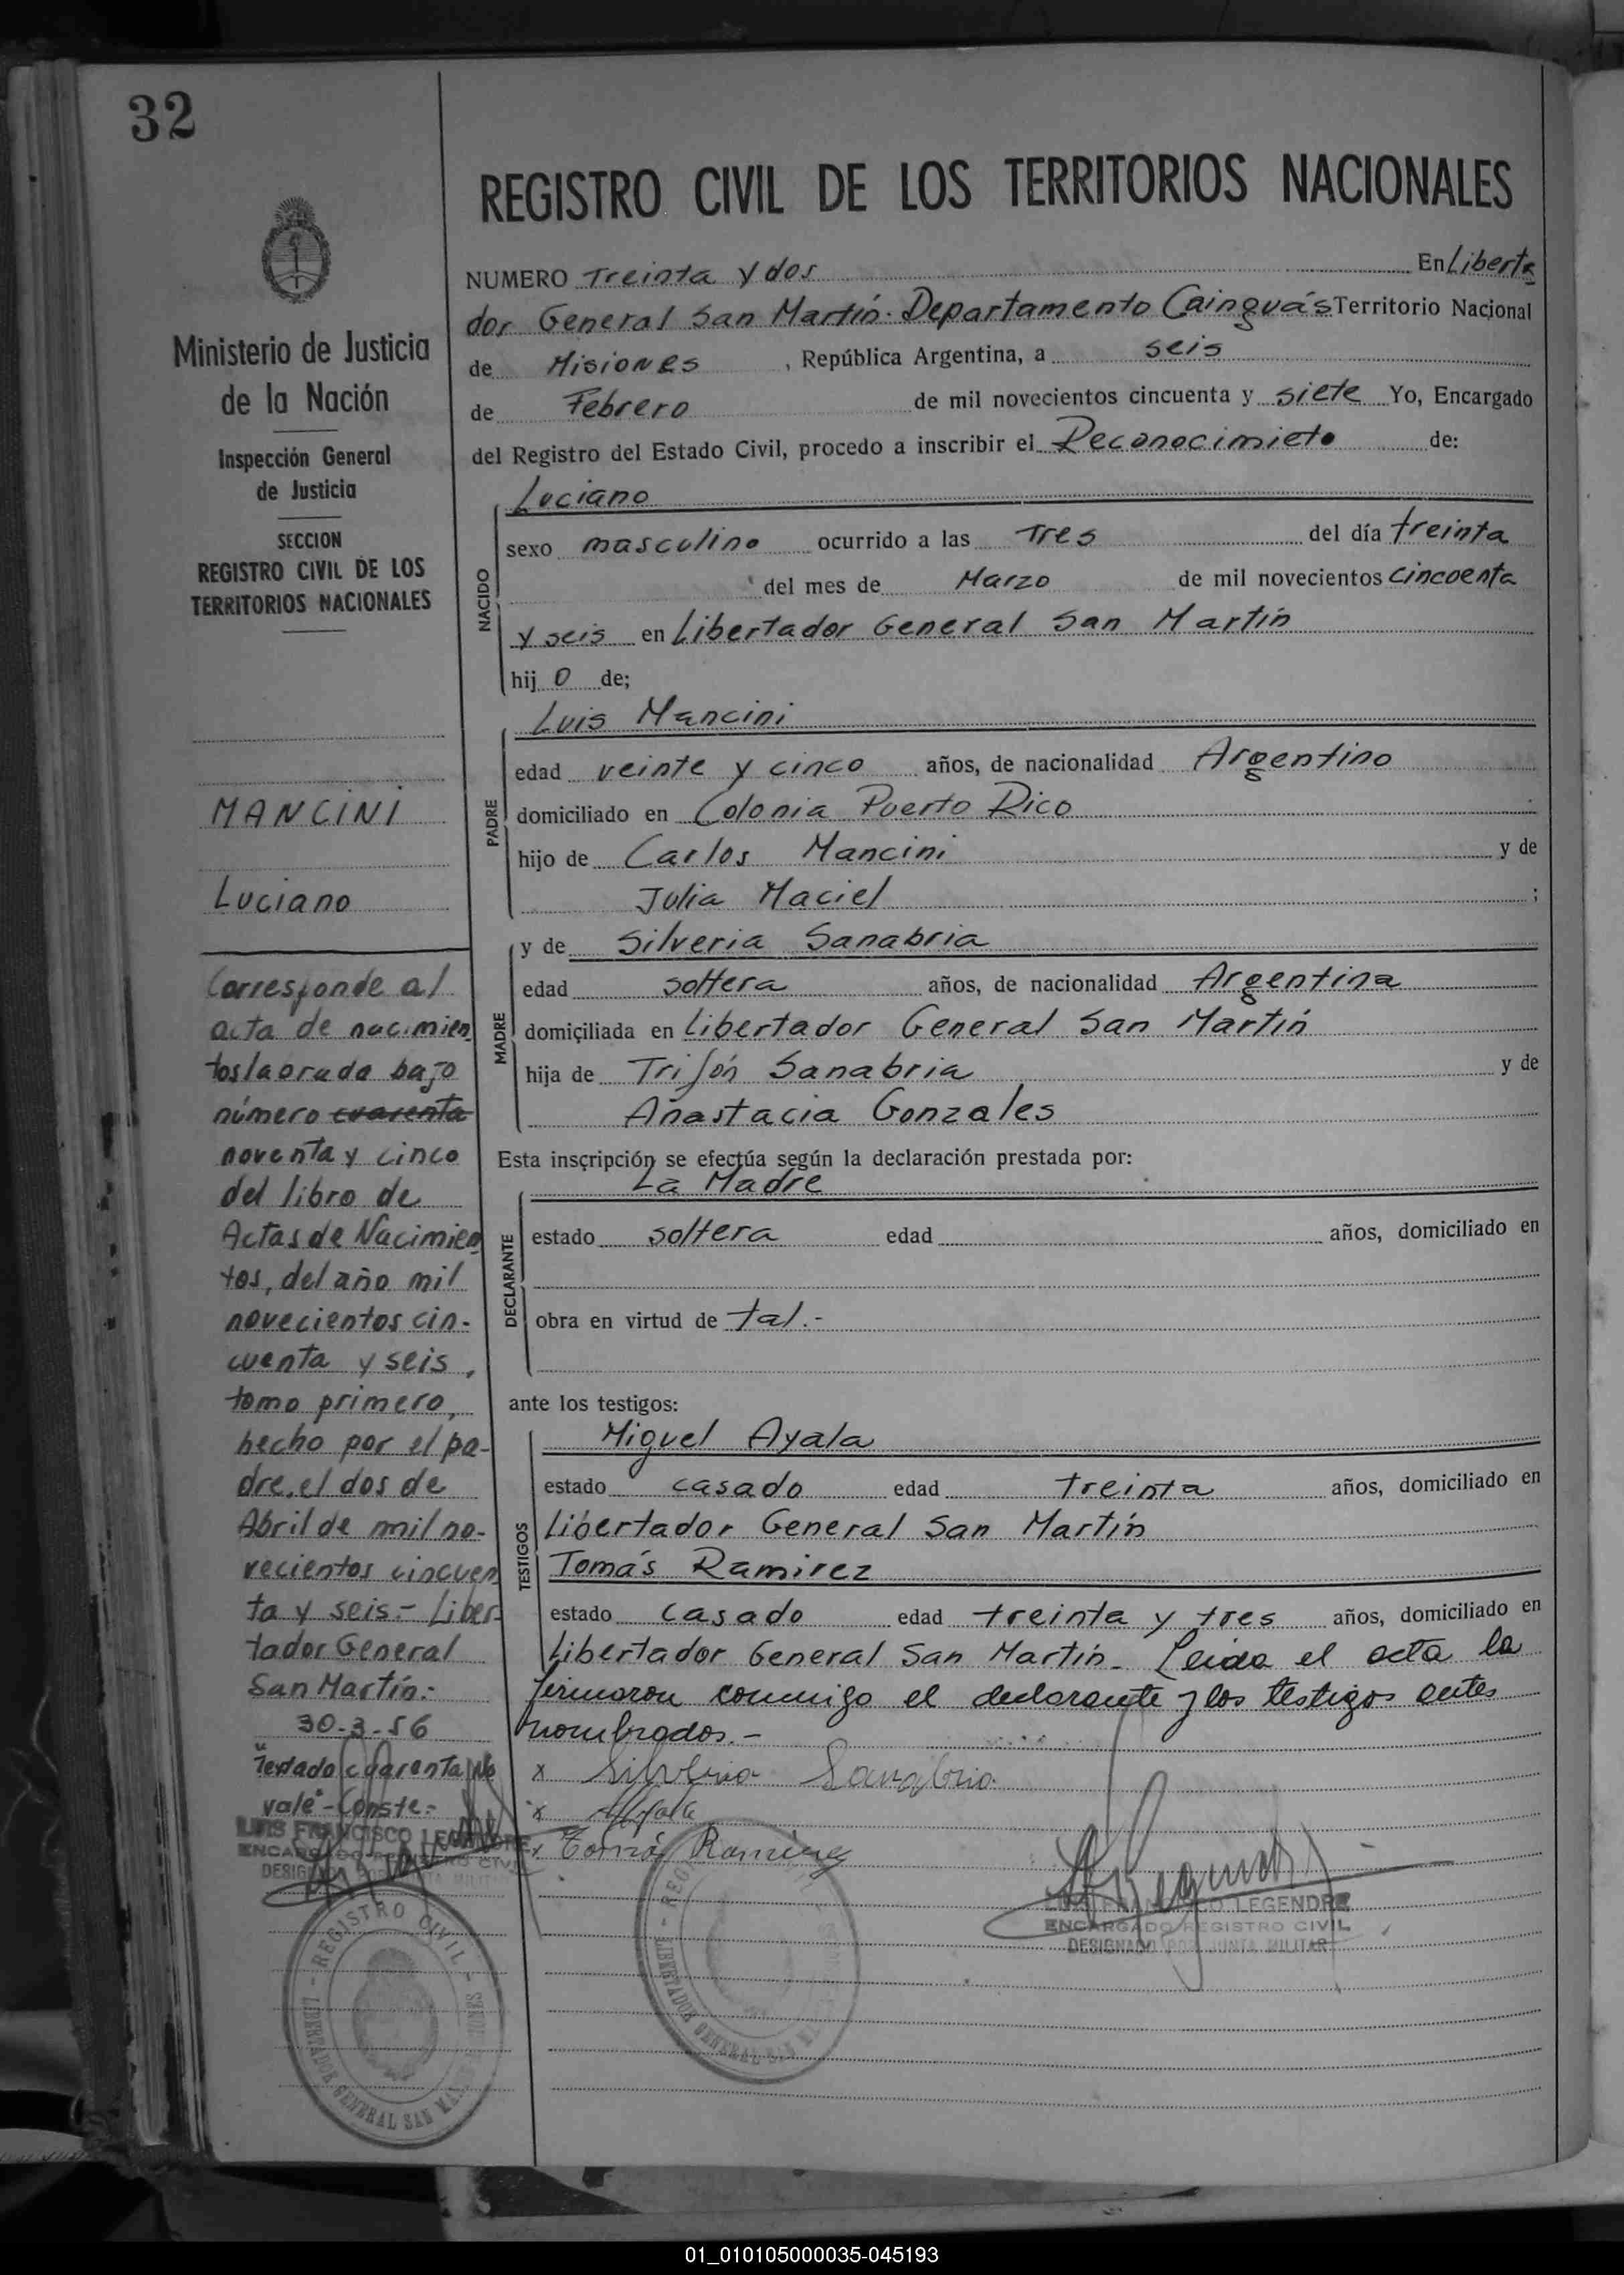 32
REGISTRO CIVIL DE LOS TERRITORIOS NACIONALES
Ministerio de Justicia
de la Nación
Inspección General
de Justicia
SECCION
REGISTRO CIVIL DE LOS
TERRITORIOS NACIONALES
MANCINI
Luciano
Corresponde al
acta de nacimien
tos laorada bajo
número cuarenta
noventa y cinco
del libro de
Actas de Nacimien
tos, del año mil
novecientos cin-
cuenta y seis,
tomo primero,
hecho por el pa-
dre, el dos de
Abril de mil no-
vecientos cincuen
ta y seis.- Liber
tador General
San Martín.-
30-3-56
"Testado cuarenta No
vale"-Conste.-
LUIS FRANCISCO LEGENDRE
ENCARGADO REGISTRO CIVIL
DESIGNADO POR JUNTA MILITAR
- REGISTRO CIVIL -
LIBERTADOR GENERAL SAN MARTIN
NUMERO Treinta y dos En Liberta
dor General San Martín. Departamento Cainguás Territorio Nacional
de Misiones , República Argentina, a seis
de Febrero de mil novecientos cincuenta y siete Yo, Encargado
del Registro del Estado Civil, procedo a inscribir el Reconocimieto de:
Luciano
NACIDO
sexo masculino ocurrido a las Tres del día treinta
del mes de Marzo de mil novecientos cincoenta
y seis en Libertador General San Martín
hij o de;
Luis Mancini
PADRE
edad veinte y cinco años, de nacionalidad Argentino
domiciliado en Colonia Puerto Rico
hijo de Carlos Mancini y de
Julia Maciel ;
y de Silveria Sanabria
MADRE
edad soltera años, de nacionalidad Argentina
domiciliada en Libertador General San Martín
hija de Trifón Sanabria y de
Anastacia Gonzales
Esta inscripción se efectúa según la declaración prestada por:
La Madre
DECLARANTE
estado soltera edad años, domiciliado en
obra en virtud de tal.-
ante los testigos:
Miguel Ayala
TESTIGOS
estado casado edad treinta años, domiciliado en
Libertador General San Martín
Tomás Ramirez
estado casado edad treinta y tres años, domiciliado en
Libertador General San Martín- Leida el acta la
firmaron conmigo el declarante y los testigos antes
nombrados.-
x Silveria Sanabria
x MAyala
x Tomás Ramirez
LUIS FRANCISCO LEGENDRE
ENCARGADO REGISTRO CIVIL
DESIGNADO POR JUNTA MILITAR
LIBERTADOR GENERAL SAN
01_010105000035-045193